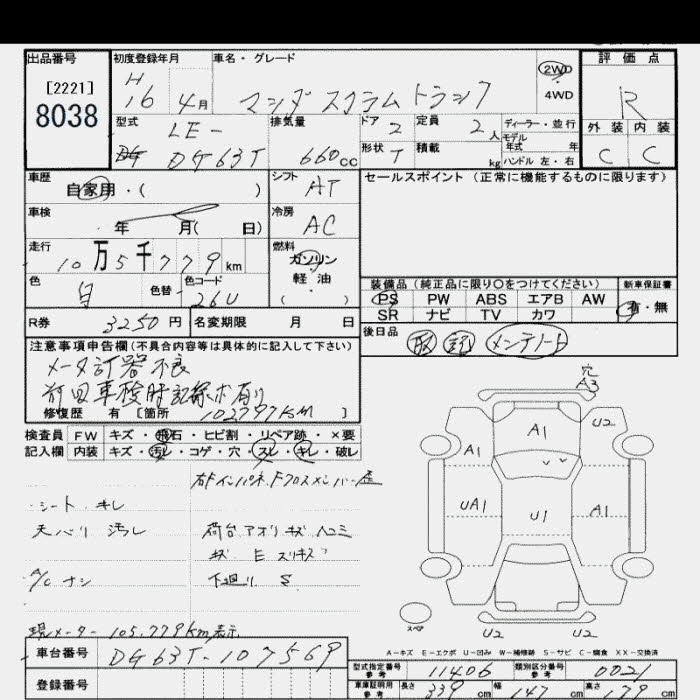 出品番号 初度登録年月 車名・グレード 評価点
[2221] H ②WD R
8038 16 4月 マツダ スクラムトラック 4WD
型式 LE- 排気量 ドア 2 定員 2人 ディーラー・並行 外装 内装
DG63T 660cc 形状 T 積載 kg モデル年式 年 ハンドル 左・右 C C
車歴 自家用・( ) シフト AT セールスポイント (正常に機能するものに限ります)
車検 年 月( 日) 冷房 AC
走行 10万5千779km 燃料 ガソリン
軽油
( )
色 白 色替 色コード 26U 装備品 (純正品に限り○をつけてください) 新車保証書
PS PW ABS エアB AW 有・無
SR ナビ TV カワ
R券 3250円 名変期限 月 日 後日品 取 記 メンテノート
注意事項申告欄(不具合内容等は具体的に記入して下さい)
メータ計器不良
前回車検時記録ボ有り
修復歴 有 [箇所 102797KM ]
検査員 FW キズ・飛石・ヒビ割・リペア跡・×要
記入欄 内装 キズ・汚レ・コゲ・穴・スレ・キレ・破レ
シート キレ
天バリ 汚レ 荷台アオリキズ ヘコミ
下廻り S
A/C ナシ
現メーター 105,779km表示
穴
A3
A1 U2
A1
UA1 U1 A1
スペア
U2 U2
A-キズ E-エクボ U-凹み W-補修跡 S-サビ C-腐食 XX-交換済
車台番号 DG63T-107569
型式指定番号 参考 11406 類別区分番号 参考 0021
登録番号 車庫証明用 参考 長さ 339cm 幅 147cm 高さ 179cm